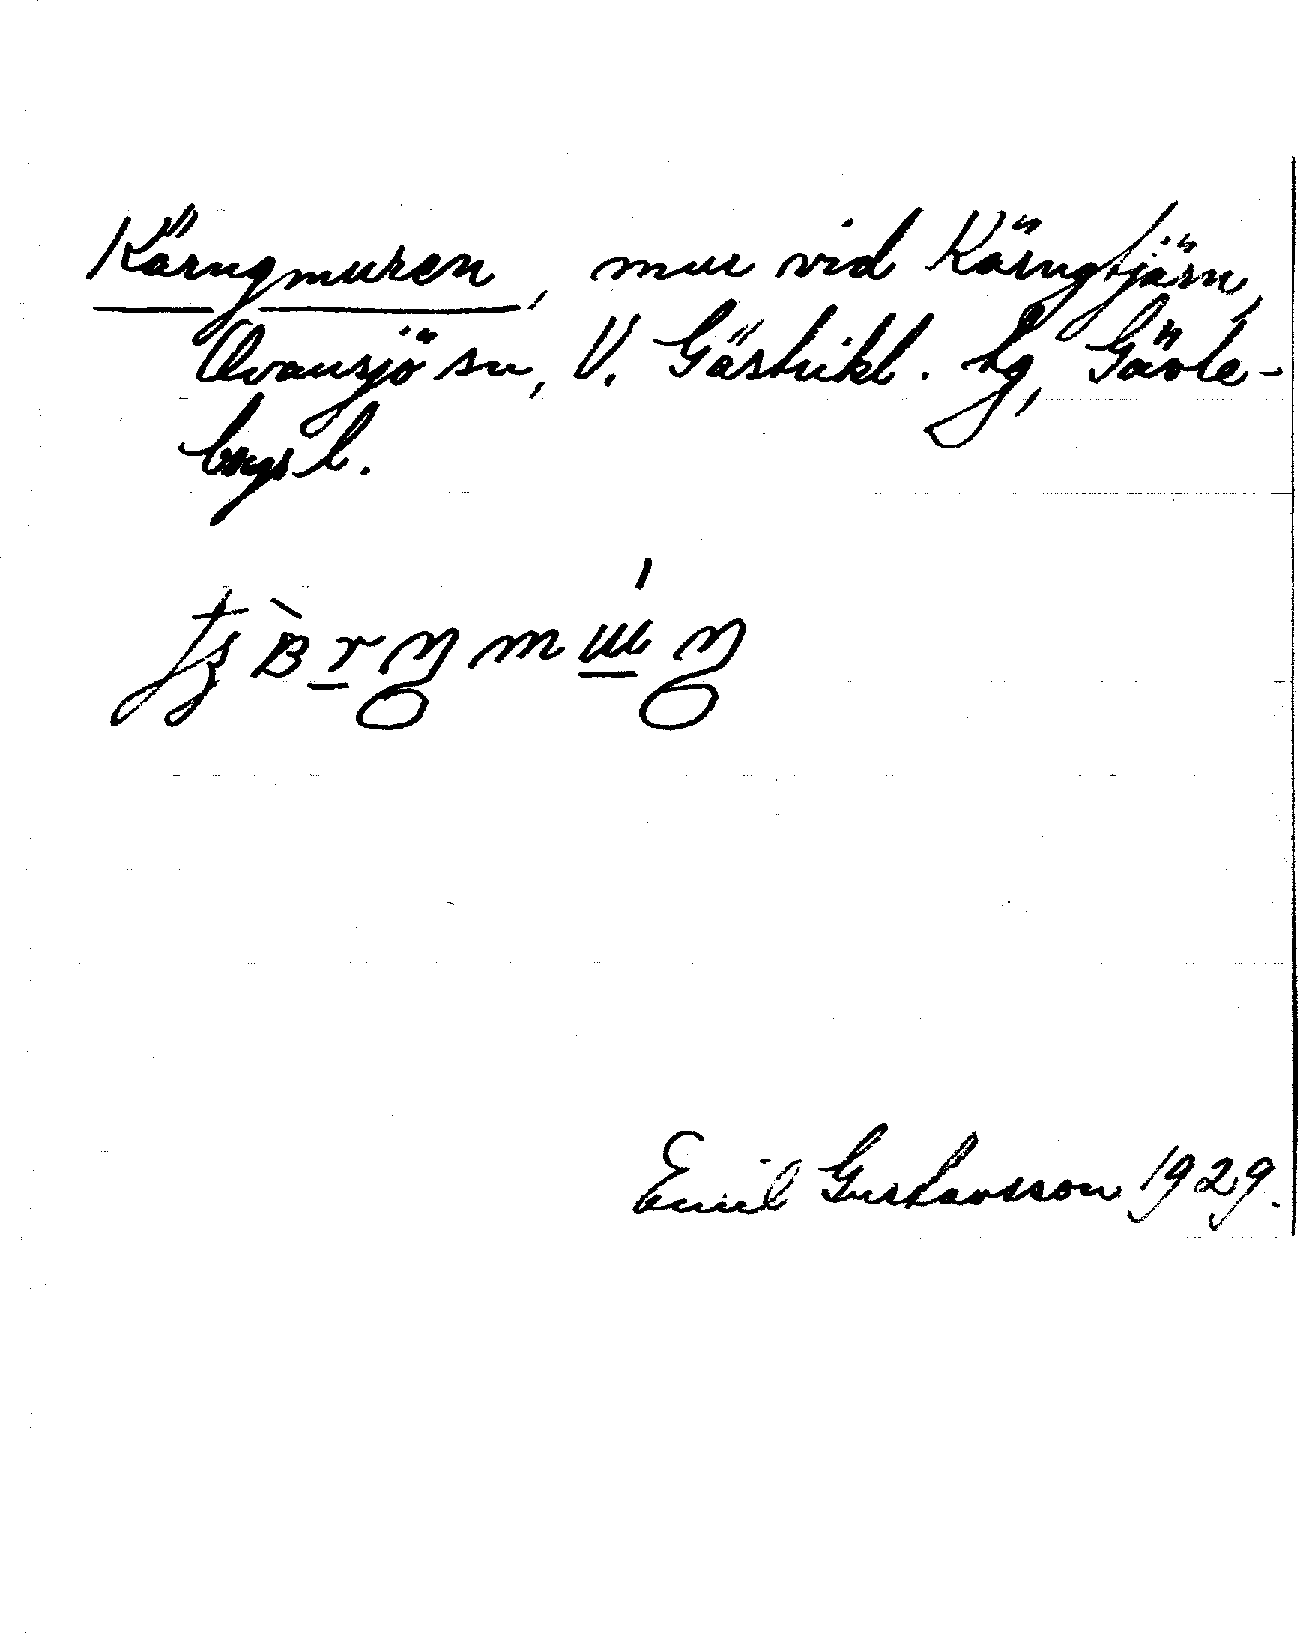 Kärngmuren, mur vid Kärngtjärn,
Ovansjö sn, V. Gästrikl. tg, Gävle-
borgs l.
Emil Gustavsson 1929.